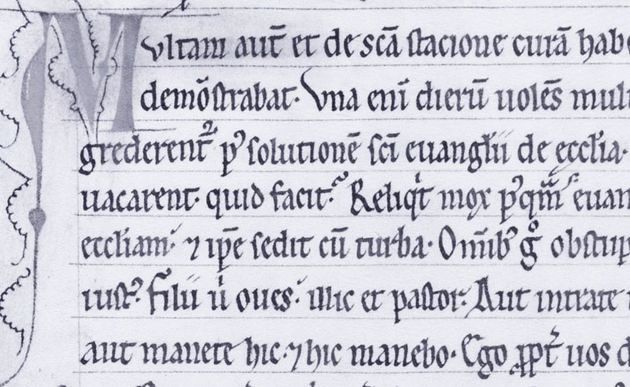 Mvltam aut̄ et de scā stacione curā hab
demōstrabat. Vna eni ̄ dierū uolēs mul
grederent᷑ p᷒ solutionē sc̄i euangl̄ii de eccl̄ia.
uacarent. quid facit. Reliq̇t mox p᷒qm̄ euan
eccl̄iam. ⁊ ip̄e sedit cū turba. Om̄ib; gͦ obstup
iust᷒. filii u̇ oues. illic et pastor. Aut intrate
aut manete hic. ⁊ hic manebo. Ego ꝓpt̄ uos d